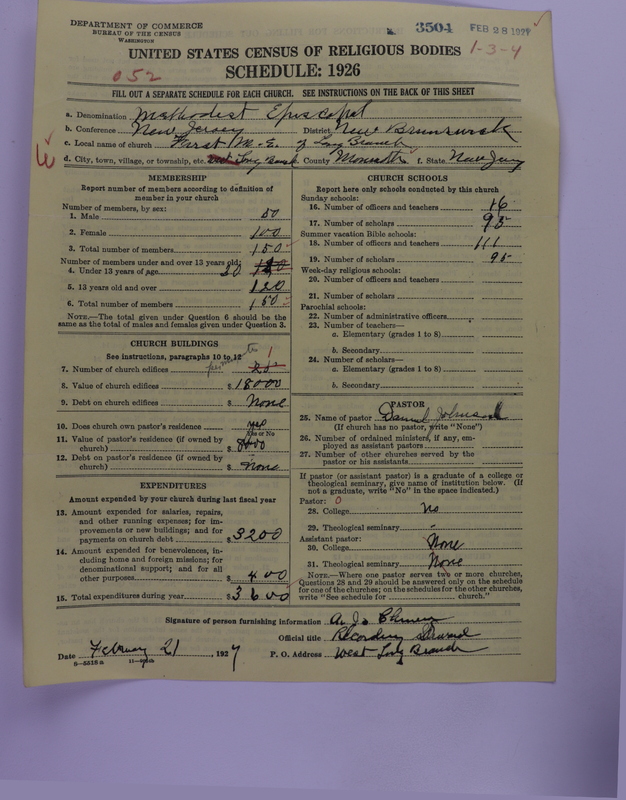 DEPARTMENT OF COMMERCE
BUREAU OF THE CENSUS
WASHINGTON
3504 FEB 28 1927
1-3-4
UNITED STATES CENSUS OF RELIGIOUS BODIES
052
SCHEDULE: 1926
FILL OUT A SEPARATE SCHEDULE FOR EACH CHURCH. SEE INSTRUCTIONS ON THE BACK OF THIS SHEET
a. Denomination Methodist Episcopal
b. Conference New Jersey District New Brunswick
c. Local name of church First M.E. of Long Branch
d. City, town, village, or township, etc. West Long Branch e. County Monmouth f. State New Jersey
MEMBERSHIP
Report number of members according to definition of
member in your church
Number of members, by sex:
1. Male 50
2. Female 100
3. Total number of members 150
Number of members under and over 13 years old:
4. Under 13 years of age 30
5. 13 years old and over 120
6. Total number of members 150
NOTE.—The total given under Question 6 should be the
same as the total of males and females given under Question 3.
CHURCH BUILDINGS
See instructions, paragraphs 10 to 12
7. Number of church edifices 1
8. Value of church edifices $ 18000
9. Debt on church edifices $ None
10. Does church own pastor's residence yes
Yes or No
11. Value of pastor's residence (if owned by
church) $ 8000
12. Debt on pastor's residence (if owned by
church) $ None
EXPENDITURES
Amount expended by your church during last fiscal year
13. Amount expended for salaries, repairs,
and other running expenses; for im-
provements or new buildings; and for
payments on church debt $ 3200
14. Amount expended for benevolences, in-
cluding home and foreign missions; for
denominational support; and for all
other purposes $ 400
15. Total expenditures during year $ 3600
CHURCH SCHOOLS
Report here only schools conducted by this church
Sunday schools:
16. Number of officers and teachers 16
17. Number of scholars 95
Summer vacation Bible schools:
18. Number of officers and teachers 111
19. Number of scholars 95
Week-day religious schools:
20. Number of officers and teachers
21. Number of scholars
Parochial schools:
22. Number of administrative officers
23. Number of teachers—
a. Elementary (grades 1 to 8)
b. Secondary
24. Number of scholars—
a. Elementary (grades 1 to 8)
b. Secondary
PASTOR
25. Name of pastor Daniel Johnson
(If church has no pastor, write "None")
26. Number of ordained ministers, if any, em-
ployed as assistant pastors
27. Number of other churches served by the
pastor or his assistants
If pastor (or assistant pastor) is a graduate of a college or
theological seminary, give name of institution below. (If
not a graduate, write "No" in the space indicated.)
Pastor: 0
28. College No
29. Theological seminary "
Assistant pastor:
30. College None
31. Theological seminary None
NOTE.—Where one pastor serves two or more churches,
Questions 28 and 29 should be answered only on the schedule
for one of the churches; on the schedules for the other churches,
write "See schedule for church."
Signature of person furnishing information
Official title Recording Steward
Date February 21, 1927 P. O. Address West Long Branch